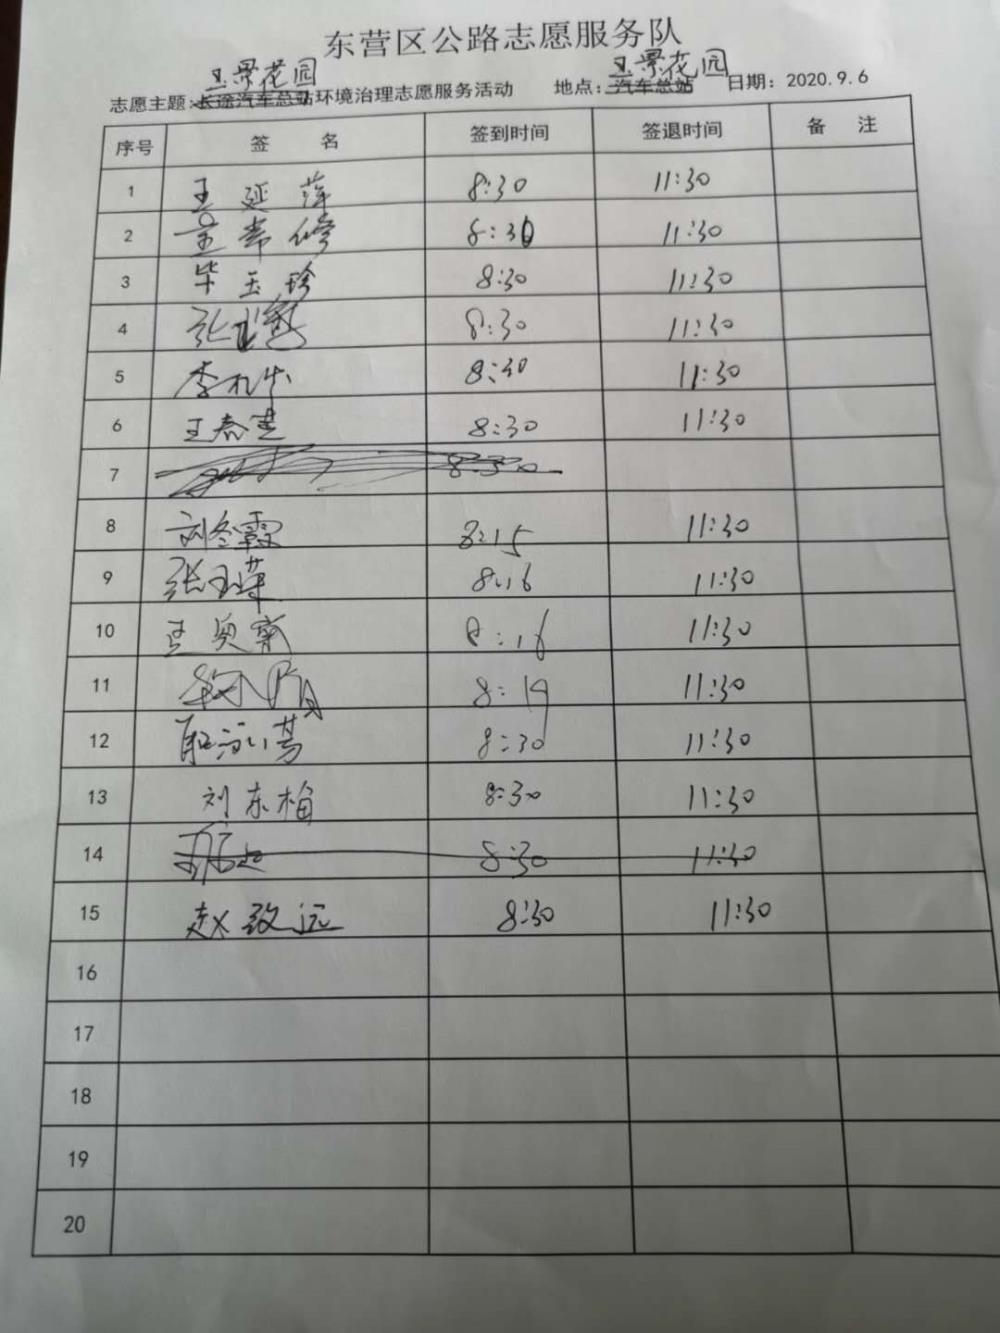 东营区公路志愿服务队
玉景花园 玉景花园
志愿主题:长途汽车总站环境治理志愿服务活动 地点:汽车总站 日期:2020.9.6
序号 签 名 签到时间 签退时间 备 注
1 王延萍 8:30 11:30
2 8:30 11:30
3 毕玉珍 8:30 11:30
4 8:30 11:30
5 8:30 11:30
6 王春 8:30 11:30
7 8:30
8 刘冬霞 8:15 11:30
9 张玉萍 8:16 11:30
10 8:16 11:30
11 8:19 11:30
12 8:30 11:30
13 刘东梅 8:30 11:30
14 8:30 11:30
15 赵致远 8:30 11:30
16
17
18
19
20